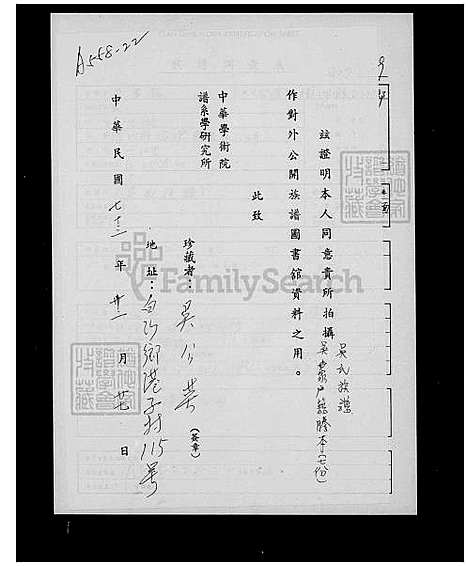 A558-22
茲證明本人同意貴所拍攝吳氏族譜
吳家戶籍謄本(七份)
作對外公開族譜圖書館資料之用。
此致
中華學術院
譜系學研究所
珍藏者：吳公英(簽章)
地址：白沙鄉港子村115號
中華民國七十三年廿一月廿七日
FamilySearch